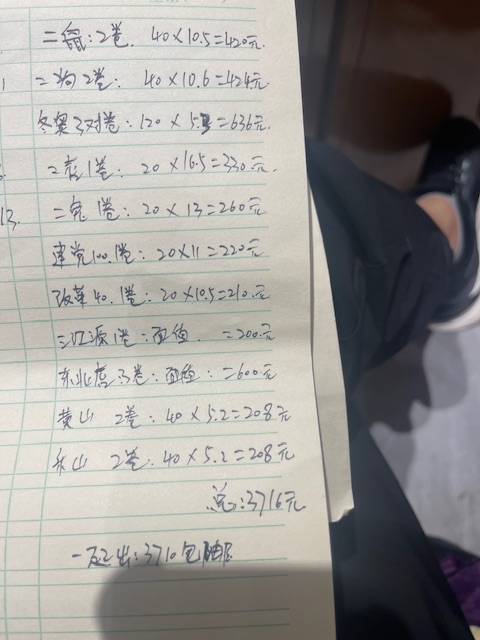 二鼠:2卷. 40×10.5=420元.
二狗2卷: 40×10.6=424元
冬奥3对卷: 120×5.3=636元.
二虎1卷: 20×16.5=330元.
二兔1卷: 20×13=260元
建党100.1卷: 20×11=220元
改革40.1卷: 20×10.5=210元
三江源1卷:面值. =200元
东北虎3卷:面值: =600元
黄山 2卷: 40×5.2=208元
泰山 2卷. 40×5.2=208元
总:3716元
一起出:3710包邮
13.